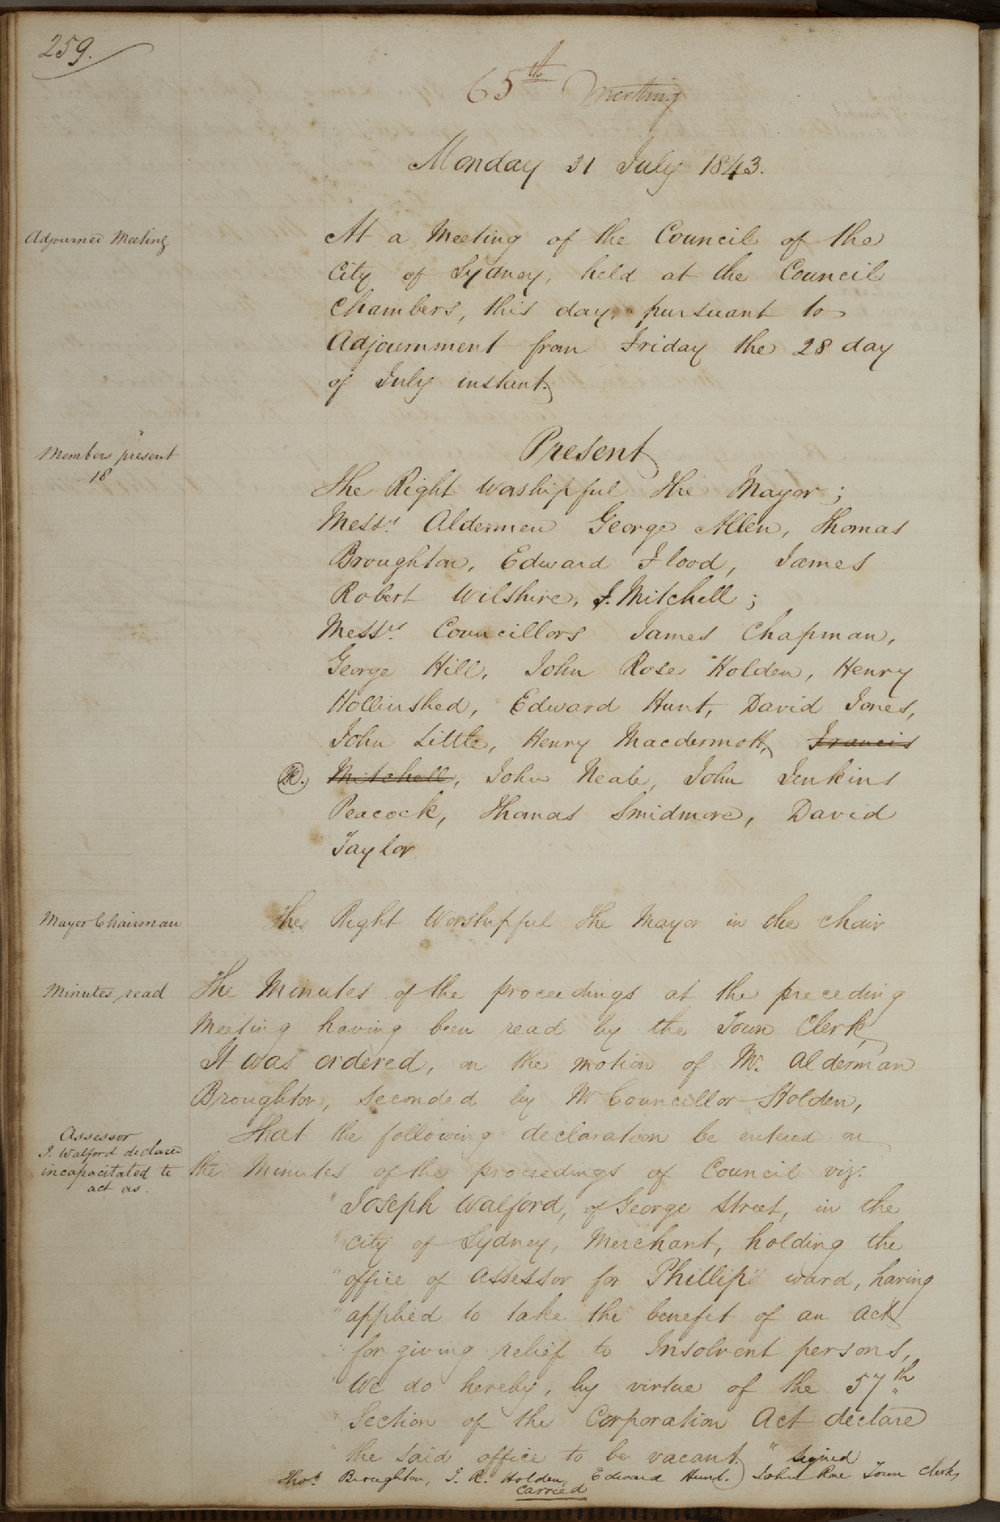 259.
65th Meeting
Monday 31 July 1843.
Adjourned Meeting
At a Meeting of the Council of the
City of Sydney, held at the Council
Chambers, this day, pursuant to
Adjournment from Friday the 28 day
of July instant.
Members present
18
Present
The Right Worshipful The Mayor;
Messrs Aldermen George Allen, Thomas
Broughton, Edward Flood, James
Robert Wilshire, F. Mitchell;
Messrs Councillors James Chapman,
George Hill, John Rose Holden, Henry
Hollinshed, Edward Hunt, David Jones,
John Little, Henry Macdermott, Francis
Mitchell, John Neale, John Jenkins
Peacock, Thomas Smidmore, David
Taylor
Mayor Chairman
The Right Worshipful The Mayor in the Chair
Minutes read
The Minutes of the proceedings at the preceding
Meeting having been read by the Town Clerk,
It was ordered, on the motion of Mr. Alderman
Broughton, Seconded by Mr Councillor Holden,
Assessor
J. Walford declared
incapacitated to
act as.
That the following declaration be entered on
the Minutes of the proceedings of Council viz.
"Joseph Walford, of George Street, in the
"City of Sydney, Merchant, holding the
"office of Assessor for Phillip ward, having
"applied to take the benefit of an Act
"for giving relief to Insolvent persons,
"We do hereby, by virtue of the 57th
"Section of the Corporation Act declare
"the said office to be vacant." Signed
Thos. Broughton, J. R. Holden, Edward Hunt. John Rae Town Clerk,
Carried